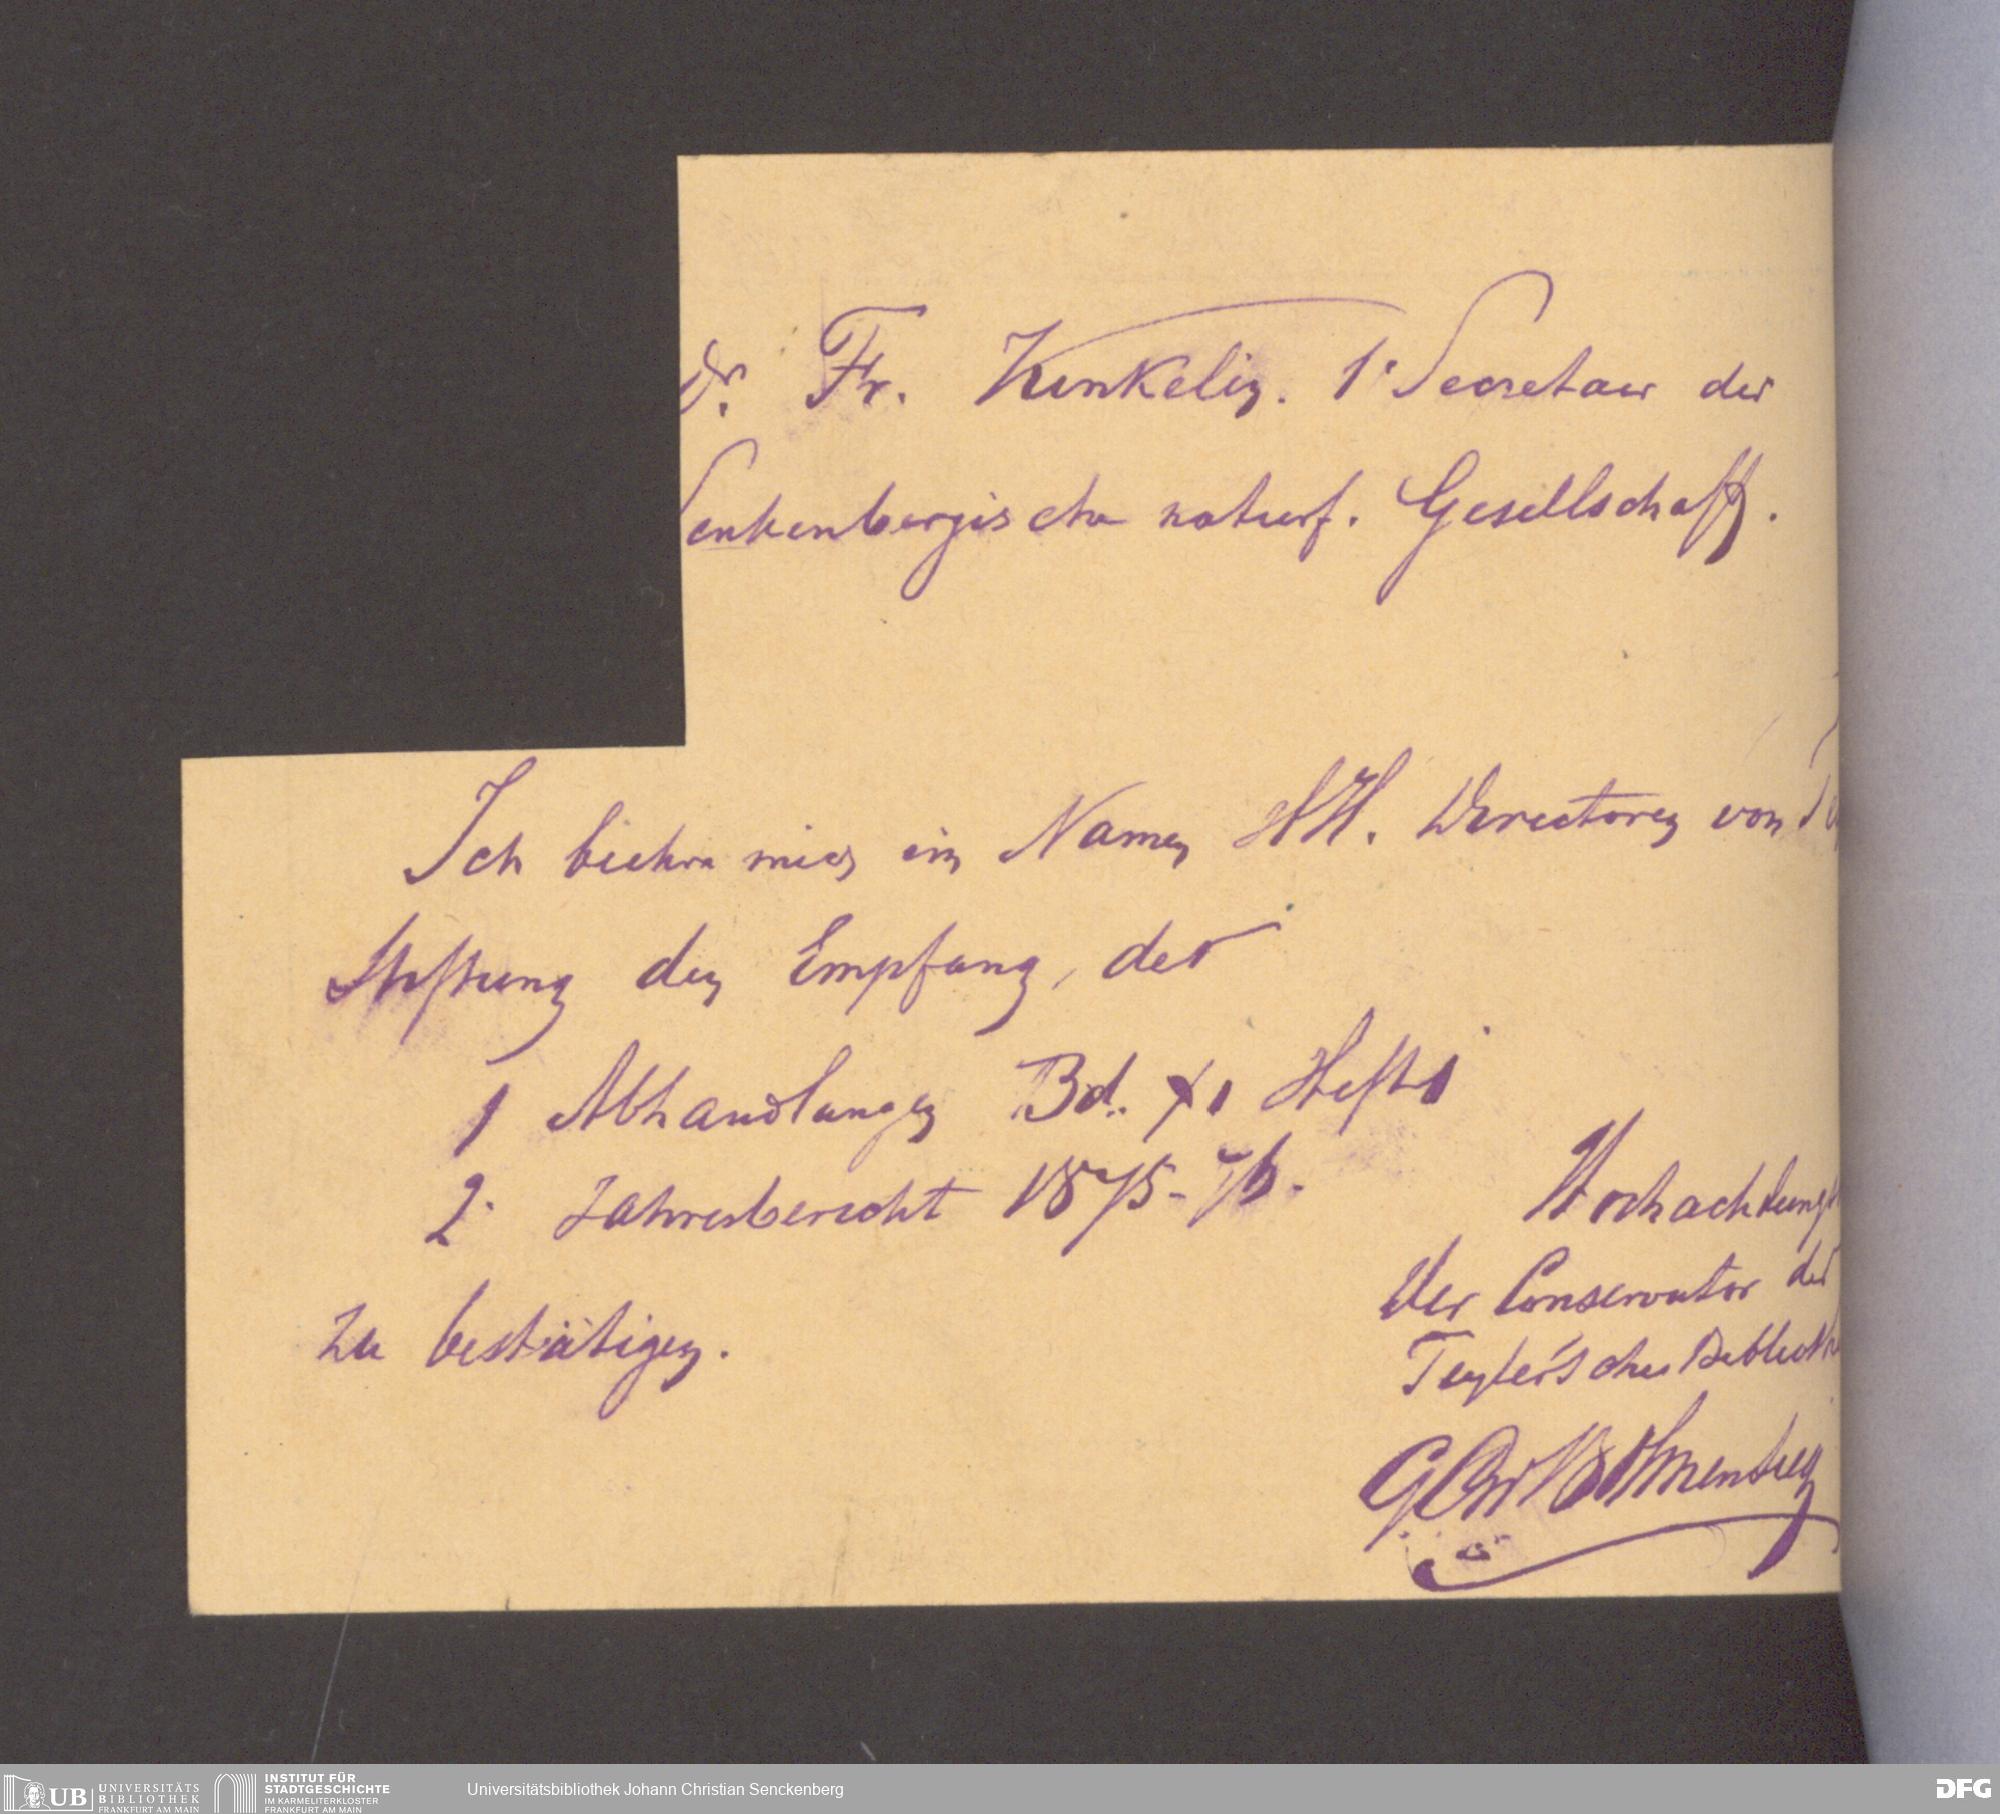 Dr. Fr. Kinkelin. 1r Secretair der
Senkenbergische naturf. Gesellschaft.
Ich beehre mich im Namen HH. Directoren von
Stiftung den Empfang, der
1 Abhandlungen Bd. XI Heft 1
2. Jahresbericht 1875-76.
zu bestätigen.
Hochachtungs
Der Conservator der
Teyler'schen Biblioth
UB UNIVERSITÄTS
BIBLIOTHEK
FRANKFURT AM MAIN
INSTITUT FÜR
STADTGESCHICHTE
IM KARMELITERKLOSTER
FRANKFURT AM MAIN
Universitätsbibliothek Johann Christian Senckenberg
DFG